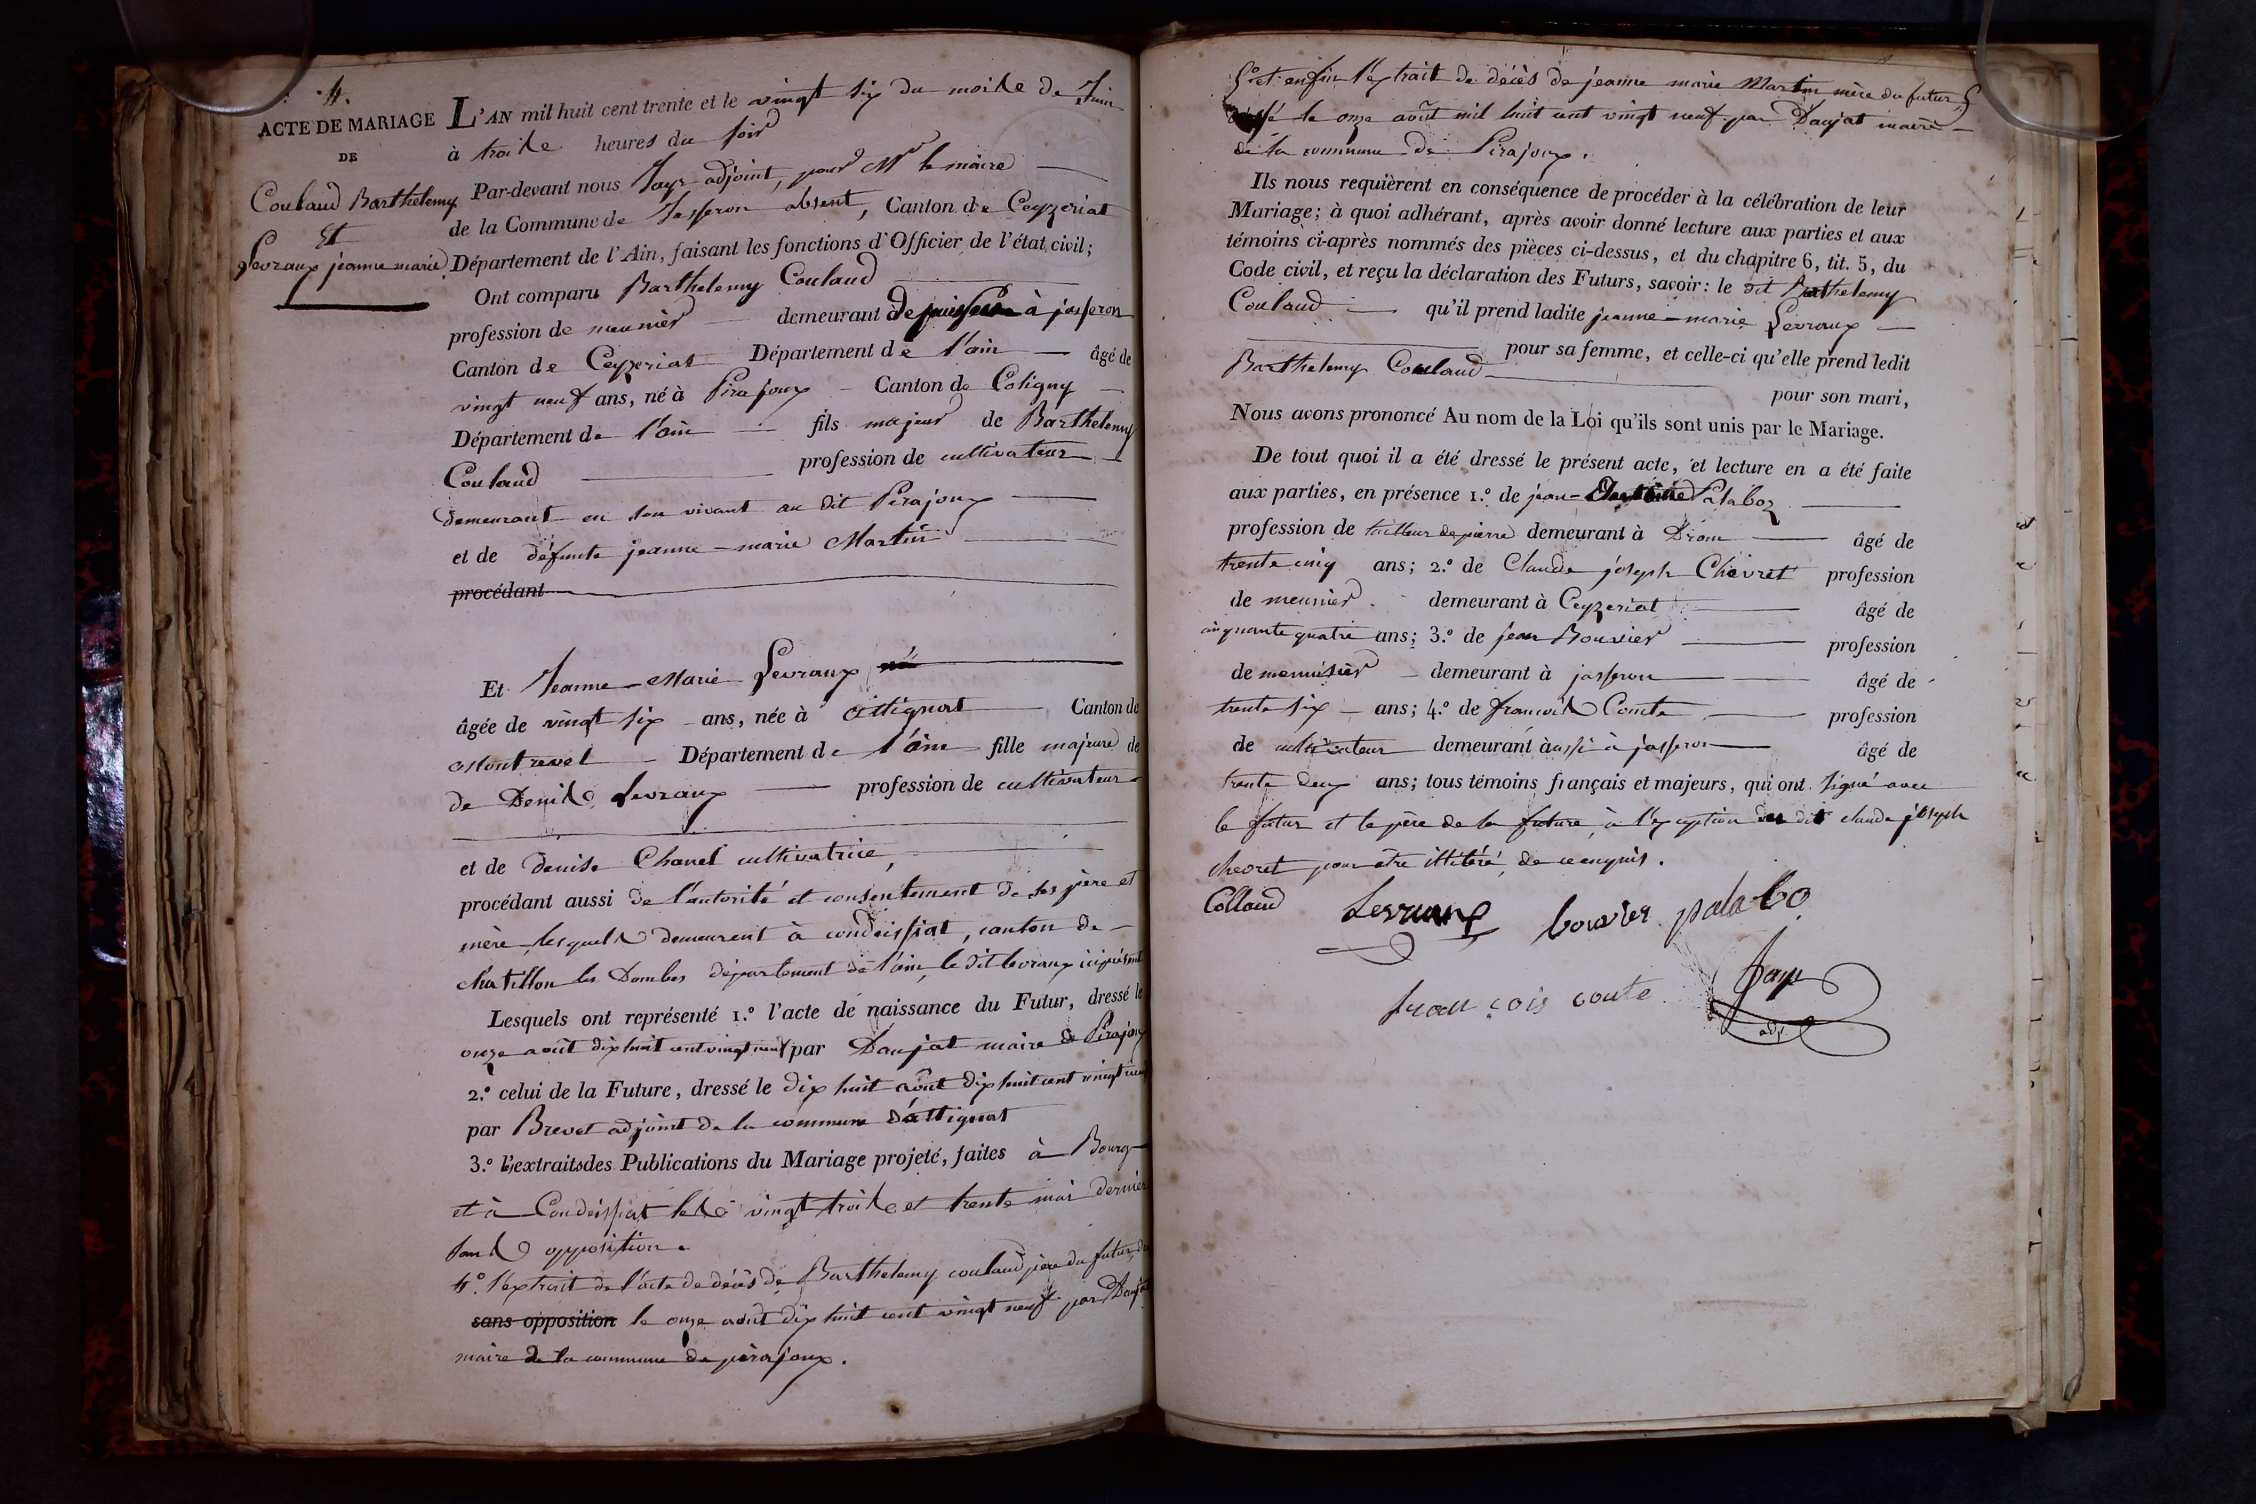 4.
ACTE DE MARIAGE
DE
Coulaud Barthelemy
Et
Levraux jeanne marie.
L'AN mil huit cent trente et le vingt six du mois de Juin
à trois heures du soir
Par-devant nous Jayr adjoint, pour Mr le maire
de la Commune de Jasseron absent, Canton de Ceyzeriat
Département de l'Ain, faisant les fonctions d'Officier de l'état civil;
Ont comparu Barthelemy Coulaud
profession de meunier demeurant à jasseron
Canton de Ceyzeriat Département de l'ain âgé de
vingt neuf ans, né à Pirajoux Canton de Coligny
Département de l'ain fils majeur de Barthelemy
Coulaud profession de cultivateur
demeurant en son vivant au dit Pirajoux
et de défunte jeanne-marie Martin
procédant
Et Jeanne-Marie Levraux
âgée de vingt six ans, née à Attignat Canton de
Montrevel Département de l'ain fille majeure de
de Denis Levraux profession de cultivateur
et de denise Chanel cultivatrice,
procédant aussi de l'autorité et consentement de ses père et
mère, lesquels demeurent à condeissiat, canton de
châtillon les Dombes département de l'ain, le dit levraux ici présent
Lesquels ont représenté 1.º l'acte de naissance du Futur, dressé le
onze août dix huit cent vingt neuf par Daujat maire de Pirajoux
2.º celui de la Future, dressé le dix huit août dix huit cent vingt neuf
par Brevet adjoint de la commune d'attignat
3.º l'extraits des Publications du Mariage projeté, faites à Bourg
et à Condeissiat les vingt trois et trente mai dernier
sans opposition.
4º. l'extrait de l'acte de décès de Barthelemy coulaud père du futur,
sans opposition le onze août dix huit cent vingt neuf par Daujat
maire de la commune de pirajoux.
5º et enfin l'extrait de décès de jeanne marie Martin mère du futur
le onze août mil huit cent vingt neuf par Daujat maire
de la commune de Pirajoux.
Ils nous requièrent en conséquence de procéder à la célébration de leur
Mariage; à quoi adhérant, après avoir donné lecture aux parties et aux
témoins ci-après nommés des pièces ci-dessus, et du chapitre 6, tit. 5, du
Code civil, et reçu la déclaration des Futurs, savoir: le dit Barthelemy
Coulaud qu'il prend ladite jeanne-marie Levraux
pour sa femme, et celle-ci qu'elle prend ledit
Barthelemy Coulaud
pour son mari,
Nous avons prononcé Au nom de la Loi qu'ils sont unis par le Mariage.
De tout quoi il a été dressé le présent acte, et lecture en a été faite
aux parties, en présence 1.º de jean Palaboz
profession de tailleur de pierre demeurant à Drom âgé de
trente cinq ans; 2.º de Claude joseph Chevret profession
de meunier demeurant à Ceyzeriat âgé de
cinquante quatre ans; 3.º de jean Bouvier profession
de menuisier demeurant à jasseron âgé de
trente six ans; 4.º de francois Comte profession
de cultivateur demeurant aussi à jasseron âgé de
trente deux ans; tous témoins français et majeurs, qui ont signé avec
le futur et le père de la future, à l'exception du dit claude joseph
chevret pour être illitéré, de ce enquis.
Collaud Levraux bouvier palabo
francois conte Jayr
adj